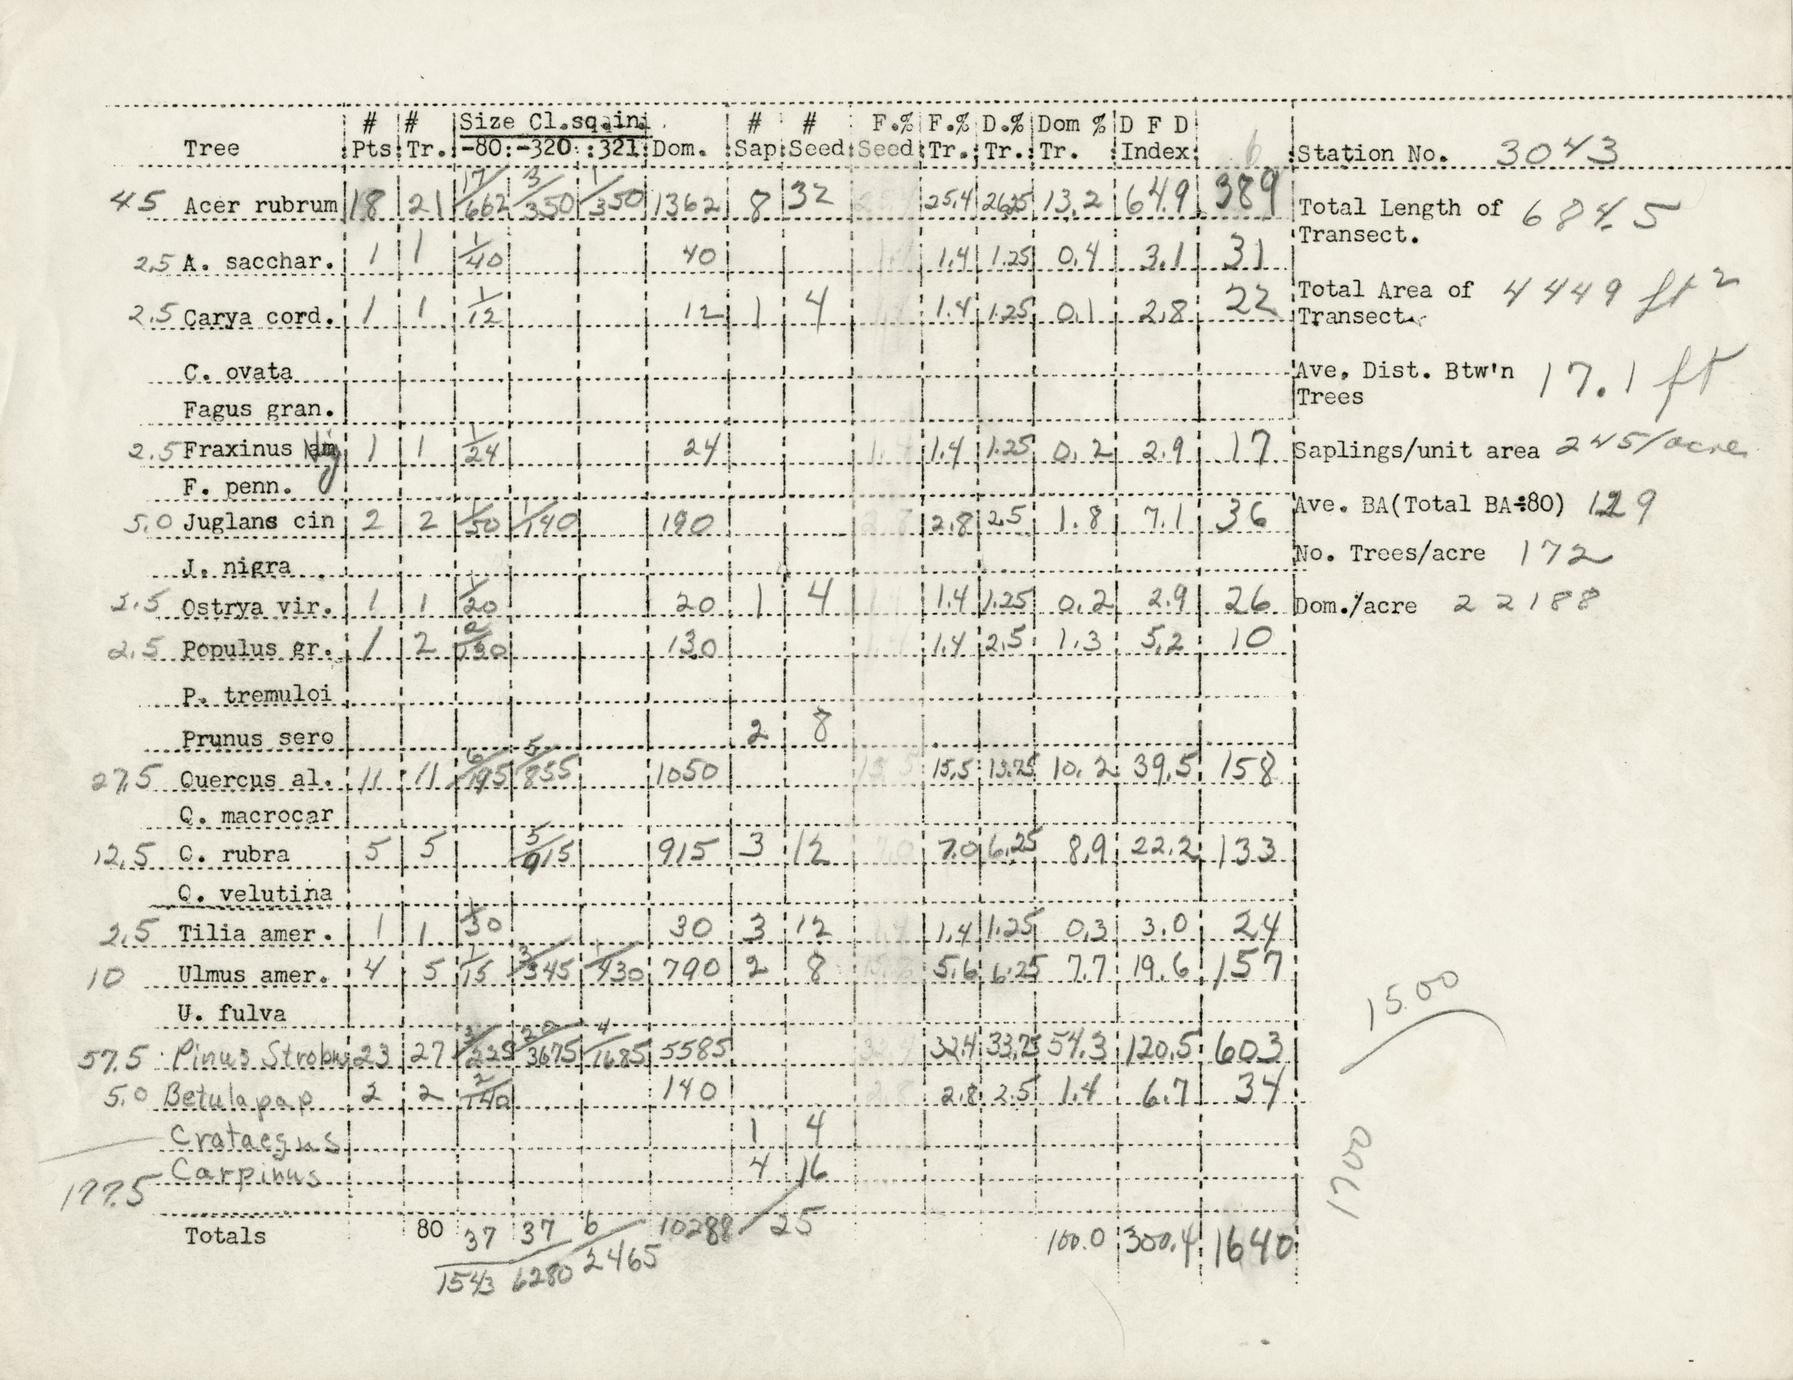 # # Size Cl.sq.in. # # F.% F.% D.% Dom % D F D
Tree Pts. Tr. -80: -320 :321 Dom. Sap Seed Seed Tr. Tr. Tr. Index 6 Station No. 3043
45 Acer rubrum 18 21 17/662 3/350 1/350 1362 8 32 25.4 26.25 13.2 64.9 389
Total Length of Transect. 684.5
2.5 A. sacchar. 1 1 1/40 40 1.4 1.25 0.4 3.1 31
Total Area of Transect. 4449 ft2
2.5 Carya cord. 1 1 1/12 12 1 4 1.4 1.25 0.1 2.8 22
C. ovata
Ave. Dist. Btw'n Trees 17.1 ft
Fagus gran.
2.5 Fraxinus Nig 1 1 1/24 24 1.4 1.4 1.25 0.2 2.9 17
Saplings/unit area 245/acre
F. penn.
Ave. BA(Total BA÷80) 129
5.0 Juglans cin 2 2 1/50 1/140 190 2.8 2.8 2.5 1.8 7.1 36
No. Trees/acre 172
J. nigra
2.5 Ostrya vir. 1 1 1/20 20 1 4 1.4 1.25 0.2 2.9 26
Dom./acre 22188
2.5 Populus gr. 1 2 2/130 130 1.4 1.4 2.5 1.3 5.2 10
P. tremuloi
Prunus sero 2 8
27.5 Quercus al. 11 11 6/195 5/855 1050 15.5 15.5 13.75 10.2 39.5 158
Q. macrocar
12.5 Q. rubra 5 5 5/915 915 3 12 7.0 7.0 6.25 8.9 22.2 133
Q. velutina
2.5 Tilia amer. 1 1 1/30 30 3 12 1.4 1.4 1.25 0.3 3.0 24
10 Ulmus amer. 4 5 1/15 3/345 1/430 790 2 8 5.6 6.25 7.7 19.6 157
U. fulva
1500
57.5 Pinus Strobus 23 27 3/225 20/3675 4/1685 5585 32.4 33.75 54.3 120.5 603
5.0 Betula pap 2 2 2/140 140 2.8 2.8 2.5 1.4 6.7 34
Crataegus 1 4
Carpinus 4 16
177.5
1700
Totals 80 37 37 6 10288 25 100.0 300.4 1640
1543 6280 2465